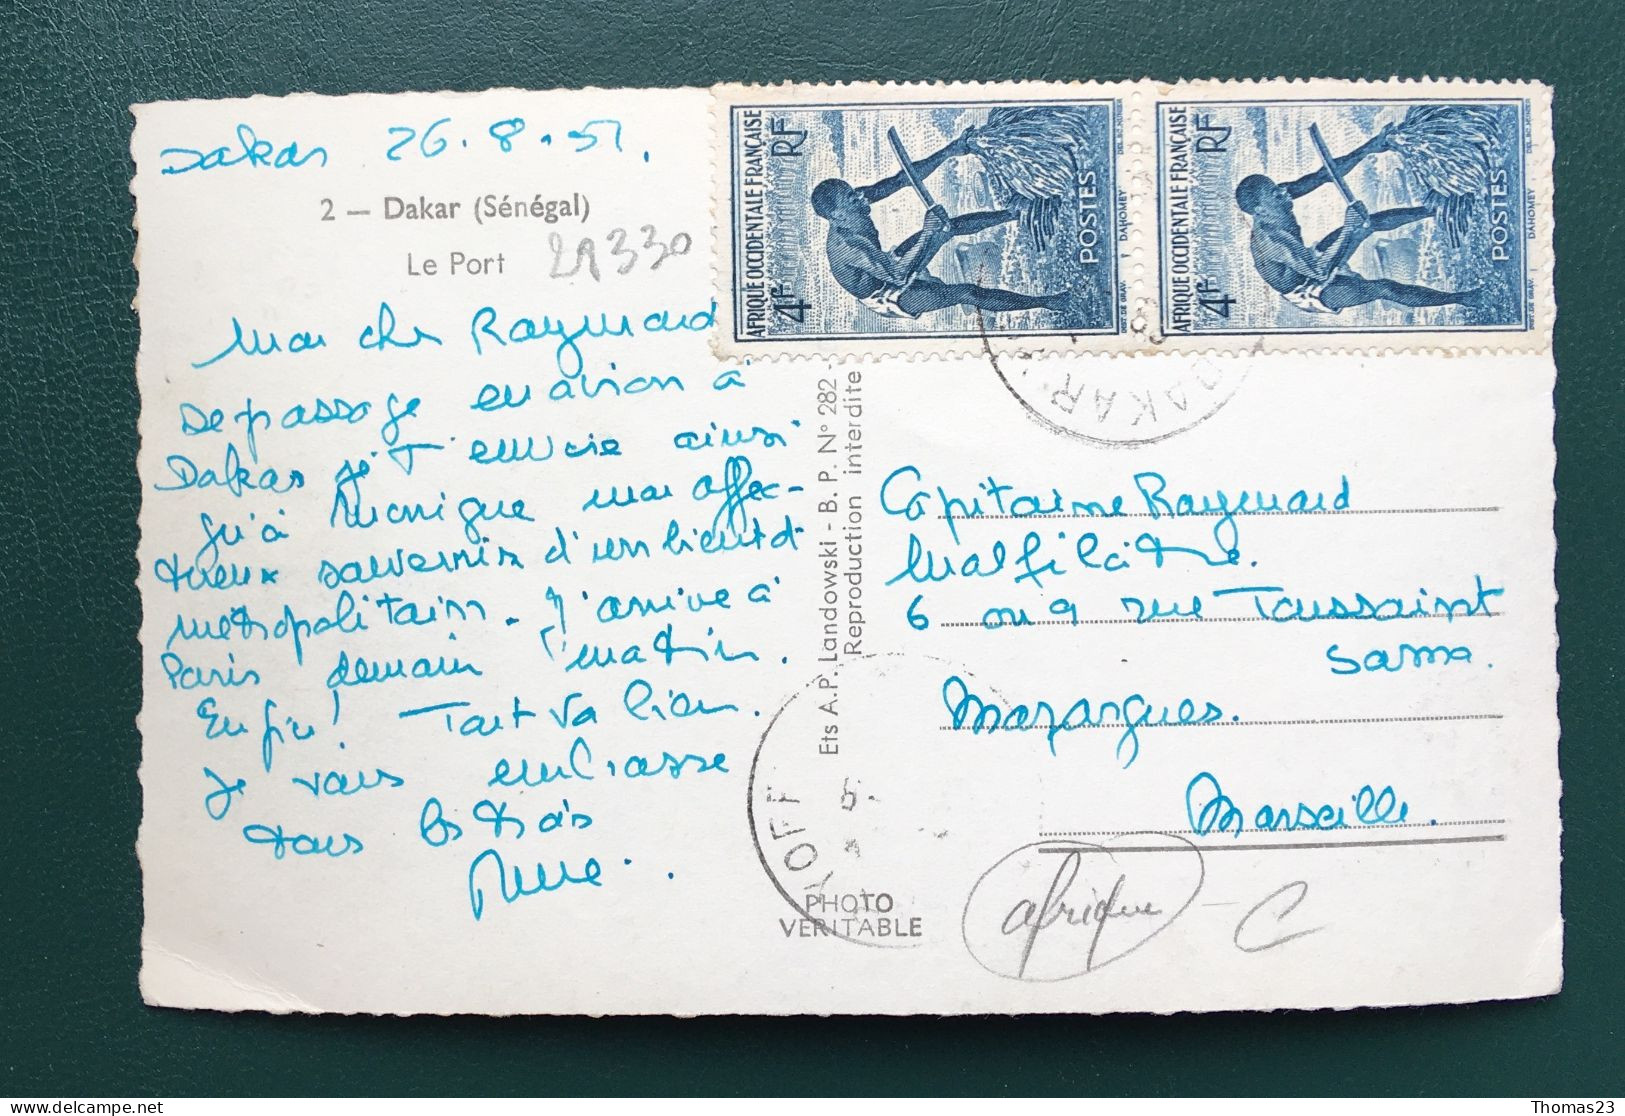 Dakar 26.8.51.
2 — Dakar (Sénégal)
Le Port
21330
Mon cher Raymond
De passage en avion à
Dakar je t'envoie ainsi
qu'à Monique mon affec-
tueux souvenir d'un bientôt
métropolitain. J'arrive à
Paris demain matin.
Enfin! Tout va bien.
Je vous embrasse
tous les trois
AFRIQUE OCCIDENTALE FRANÇAISE
4F RF
POSTES
DAHOMEY
AFRIQUE OCCIDENTALE FRANÇAISE
4F RF
POSTES
DAHOMEY
DAKAR
Ets A.P. Landowski - B.P. N° 282 -
Reproduction interdite
YOFF
PHOTO
VERITABLE
Capitaine Raymond
Malfilâtre.
6 ou 9 rue Toussaint
Mazargues.
Marseille.
afrique - C
Thomas23